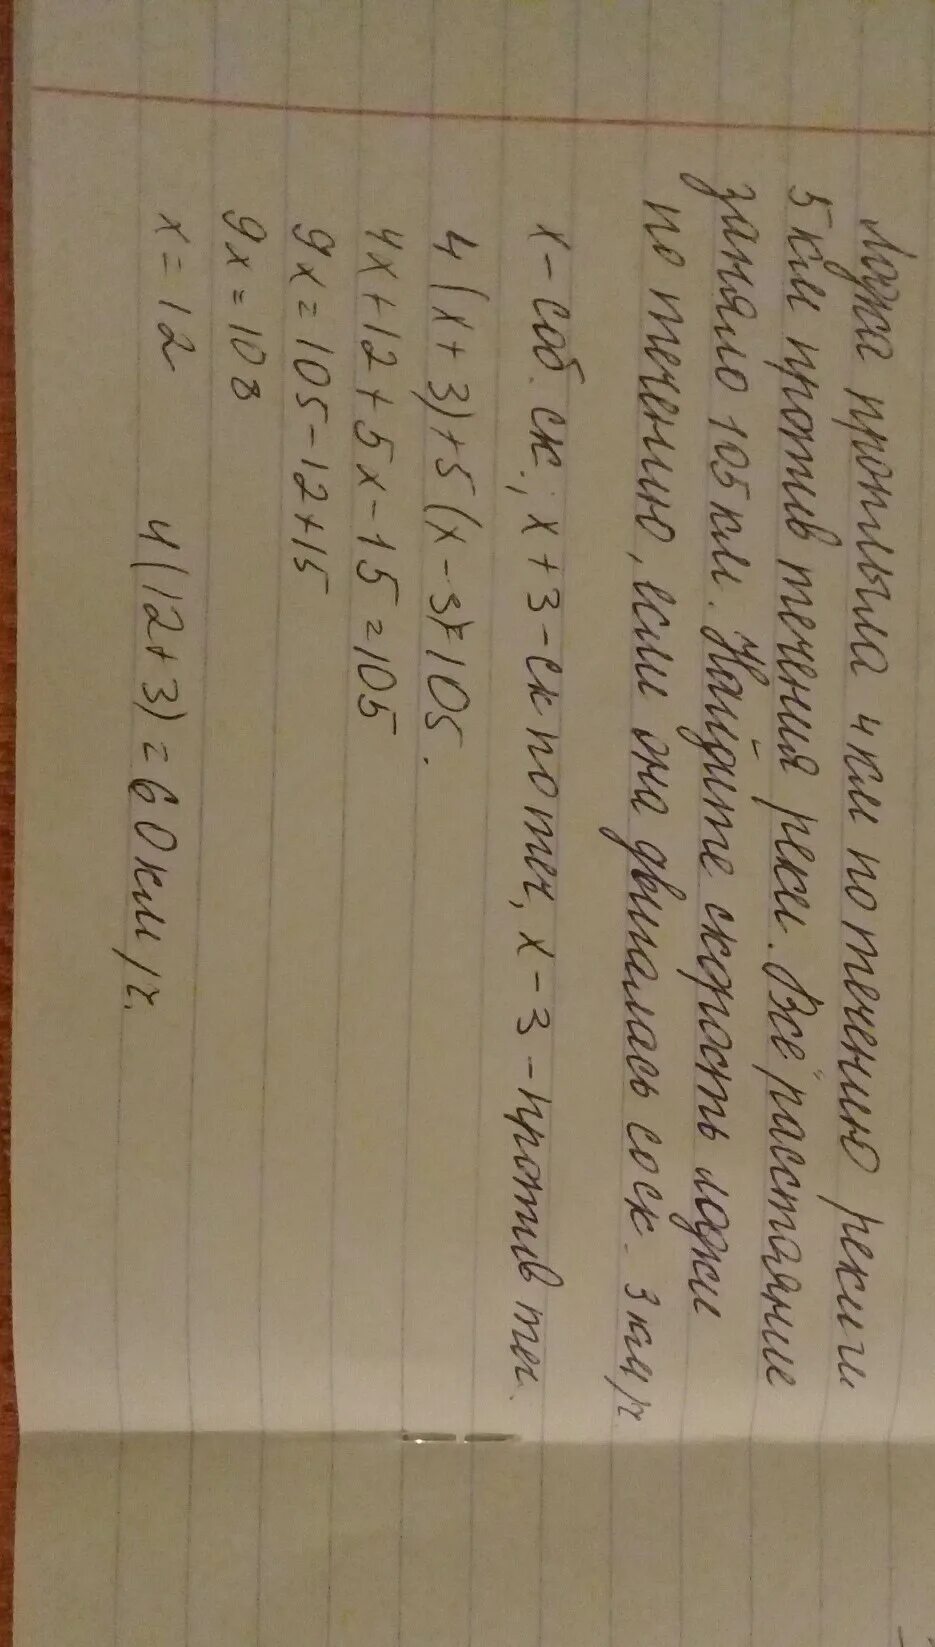 Лодка проплыла 4 км по течению реки и
5 км против течения реки. Все расстаяние
заняло 105 км. Найдите скорость лодки
по течению, если она двигалась со ск. 3 км/ч.
x - соб. ск; x + 3 - ск по теч, x - 3 - против теч.
4 (x + 3) + 5 (x - 3) = 105.
4x + 12 + 5x - 15 = 105
9x = 105 - 12 + 15
9x = 108
x = 12 4 (12 + 3) = 60 км/ч.